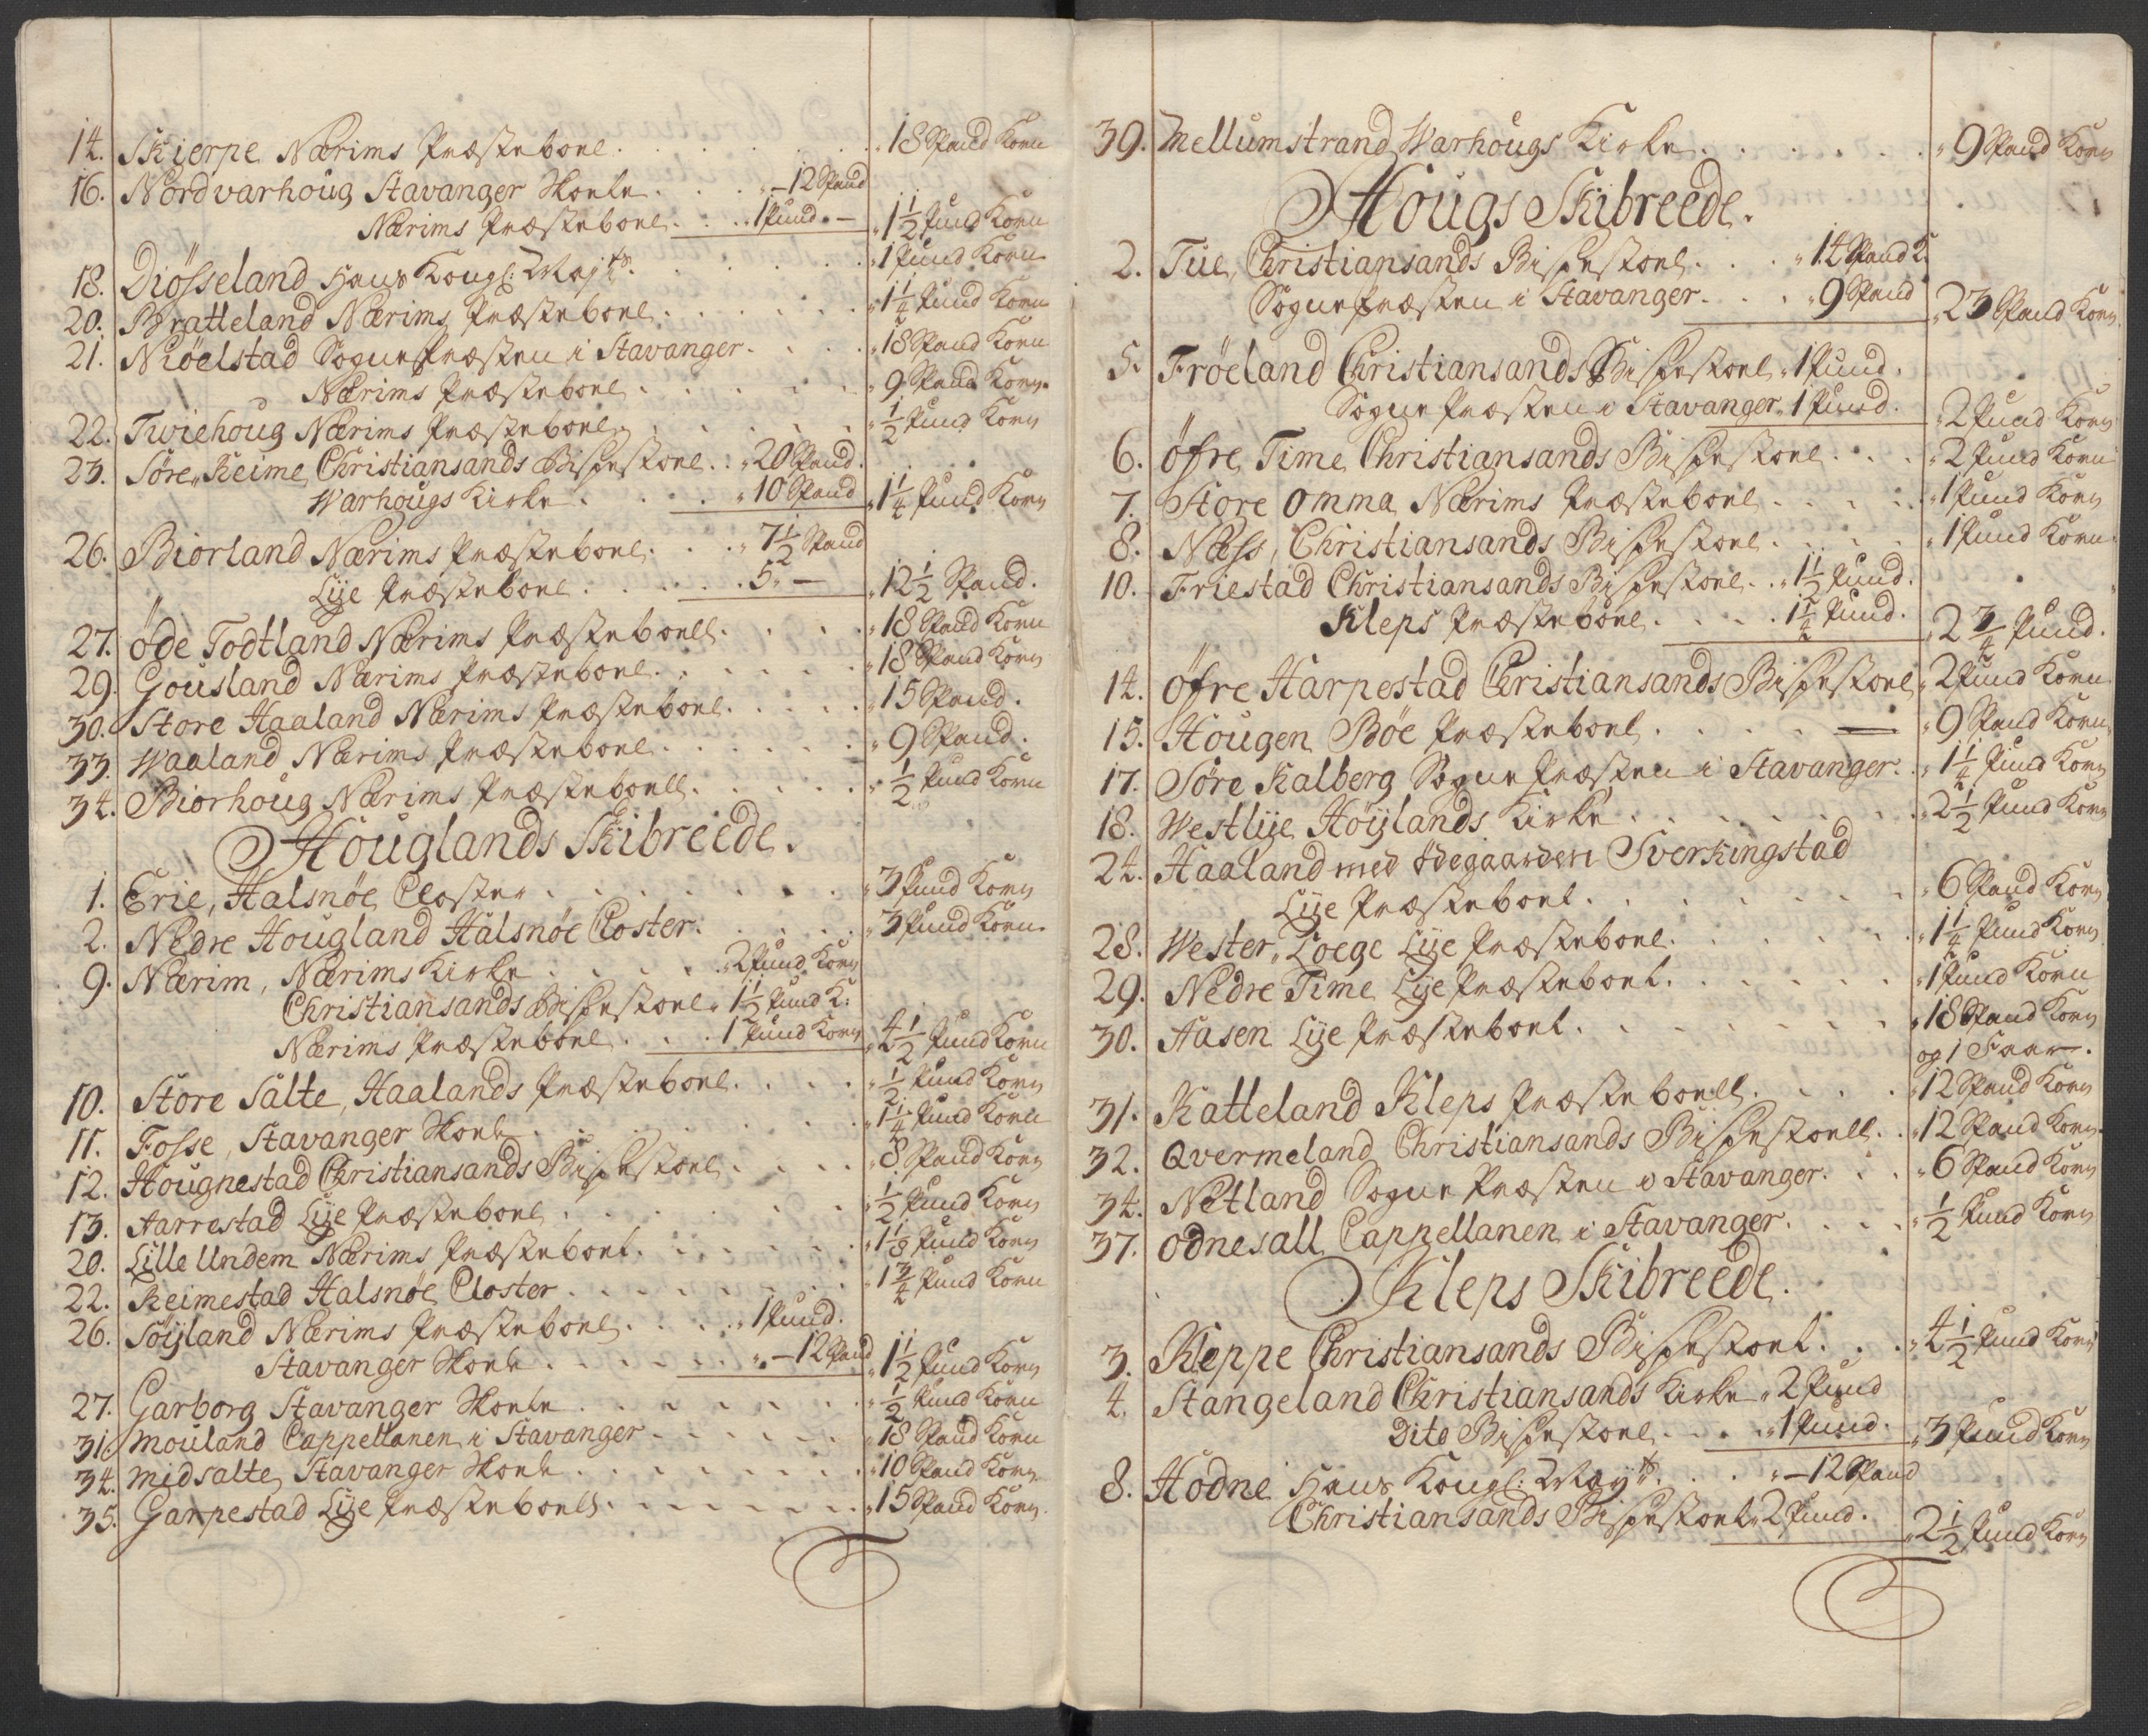 14. Skierpe Nærims Præsteboel . . . . . . 18 Spand Korn
16. Nordvarhoug Stavanger Skoele . . . „ – 12 Spand
Nærims Præsteboel . . . 1 Pund. – „ 1 1/2 Pund Korn
18. Diösseland Hans Kongl: Mayts. . . . . . „ 1 Pund Korn
20. Bratteland Nærims Præsteboel . . . . . „ 1 1/4 Pund Korn
21. Niöelstad Sognepræsten i Stavanger . . . . „ 18 Spand Korn
Nærims Præsteboel . . . . . . „ 9 Spand Korn.
22. Twiehoug Nærims Præsteboel . . . . . . 1/2 Pund Korn
23. Söre„Keime, Christiansands Bispestoel . . „ 20 Spand.
Warhougs Kirke . . . . „ 10 Spand „ 1 1/4 Pund Korn
26. Biorland Nærims Præsteboel . . . „ 7 1/2 Spand
Lye Præsteboel . . . . . . 5 „ – „ 12 1/2 Spand.
27. Öde Todtland Nærims Præsteboell . . . . „ 18 Spand Korn
29. Gousland Nærims Præsteboel . . . . . „ 18 Spand Korn
30. Store Haaland Nærims Præsteboel . . . . . „ 15 Spand.
33. Waaland Nærims Præsteboel . . . . . . „ 9 Spand.
34. Biorhoug Nærims Præsteboell . . . . . „ 1/2 Pund Korn
Houglands Skibreede.
1. Erie, Halsnöe Closter . . . . . . . „ 3 Pund Korn
2. Nedre Hougland Halsnöe Closter . . . . . „ 3 Pund Korn.
9. Nærim, Nærims Kirke . . . . . „ 2 Pund Korn
Christiansands Bispestoel „ 1 1/2 Pund K:
Nærims Præsteboel . . . . 1 Pund Korn „ 4 1/2 Pund Korn
10. Store Salte, Haalands Præsteboel . . . . „ 1/2 Pund Korn
11. Fosse, Stavanger Skoele . . . . . . . „ 1 1/4 Pund Korn
12. Hougnestad Christiansands Bispestoel . . . . „ 8 Spand Korn
13. Aarrestad Lye Præsteboel . . . . . . . „ 1/2 Pund Korn
20. Lille Undem Nærims Præsteboel . . . . . . „ 1 1/8 Pund Korn
22. Keimestad Halsnöe Closter . . . . . . . „ 1 3/4 Pund Korn
26. Söyland Nærims Præsteboel . . . . „ 1 Pund.
Stavanger Skoele . . . . . . „ – 12 Spand „ 1 1/2 Pund Korn
27. Garborg Stavanger Skoele . . . . . . . „ 1/2 Pund Korn
31. Mouland Cappellanen i Stavanger . . . . . „ 18 Spand Korn
34. Midsalte, Stavanger Skoele . . . . . . . „ 10 Spand Korn
35. Garpestad Lye Præsteboell . . . . . . . „ 15 Spand Korn.
39. Mellumstrand Warhougs Kirke . . . . . . „ 9 Spand Korn
Hougs Skibreede.
2. Tue, Christiansands Bispestoel . . . „ 14 Spand K.
Sognepræsten i Stavanger . . . „ 9 Spand „ 23 Spand Korn.
5. Fröeland Christiansands Bispestoel „ 1 Pund.
Sognepræsten i Stavanger „ 1 Pund. „ 2 Pund Korn
6. Öfre Time Christiansands Bispestoel . . . „ 2 Pund Korn
7. Store Omma Nærims Præsteboel . . . . . „ 1 Pund Korn
8. Næss, Christiansands Bispestoel . . . . „ 1 Pund Korn.
10. Friestad Christiansands Bispestoel . . „ 1 1/2 Pund.
Kleps Præsteboel . . . . 1 1/4 Pund. „ 2 3/4 Pund.
14. Öfre Harpestad Christiansands Bispestoel „ 2 Pund Korn
15. Hougen Böe Præsteboel . . . . – „ 9 Spand Korn
17. Söre Kalberg Sognepræsten i Stavanger . . „ 1 1/4 Pund Korn
18. Westlye Höylands Kirke . . . . . . . „ 2 1/2 Pund Korn
24. Haaland med Ödegaarden Sverkingstad
Lye Præsteboel . . . . . . . „ 6 Spand Korn
28. Wester„Loege Lye Præsteboel . . . . . . „ 1 1/4 Pund Korn
29. Nedre Time Lye Præsteboel . . . . . . „ 1 Pund Korn
30. Aasen Lye Præsteboel . . . . . . . „ 18 Spand Korn
og 1 Faar.
31. Katteland Kleps Præsteboell . . . . „ 12 Spand Korn
32. Qvermeland Christiansands Bispestoell . . „ 12 Spand Korn.
34. Netland Sognepræsten i Stavanger . . . „ 6 Spand Korn
37. Odnesall Cappellanen i Stavanger . . . . „ 1/2 Pund Korn
Kleps Skibreede.
3. Kleppe Christiansands Bispestoel . . . „ 4 1/2 Pund Korn
4. Stangeland Christiansands Kirke „ 2 Pund
Dito Bispestoel . . . . „ 1 Pund. „ 3 Pund Korn
8. Hodne Hans Kongl: Mayts. . . . „ – 12 Spand
Christiansands Bispestoel „ 2 Pund. „ 2 1/2 Pund Korn